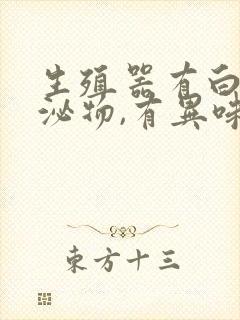 生殖器有白
泌物,有異味
東方十三